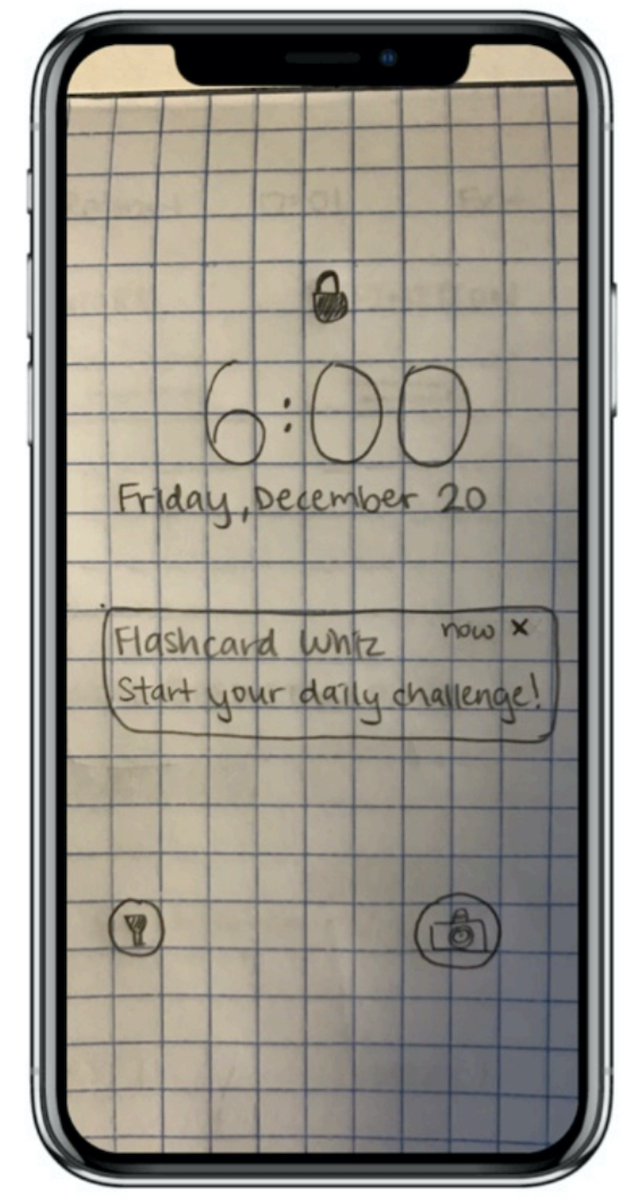 6:00
Friday, December 20
Flashcard Whiz now x
Start your daily challenge!